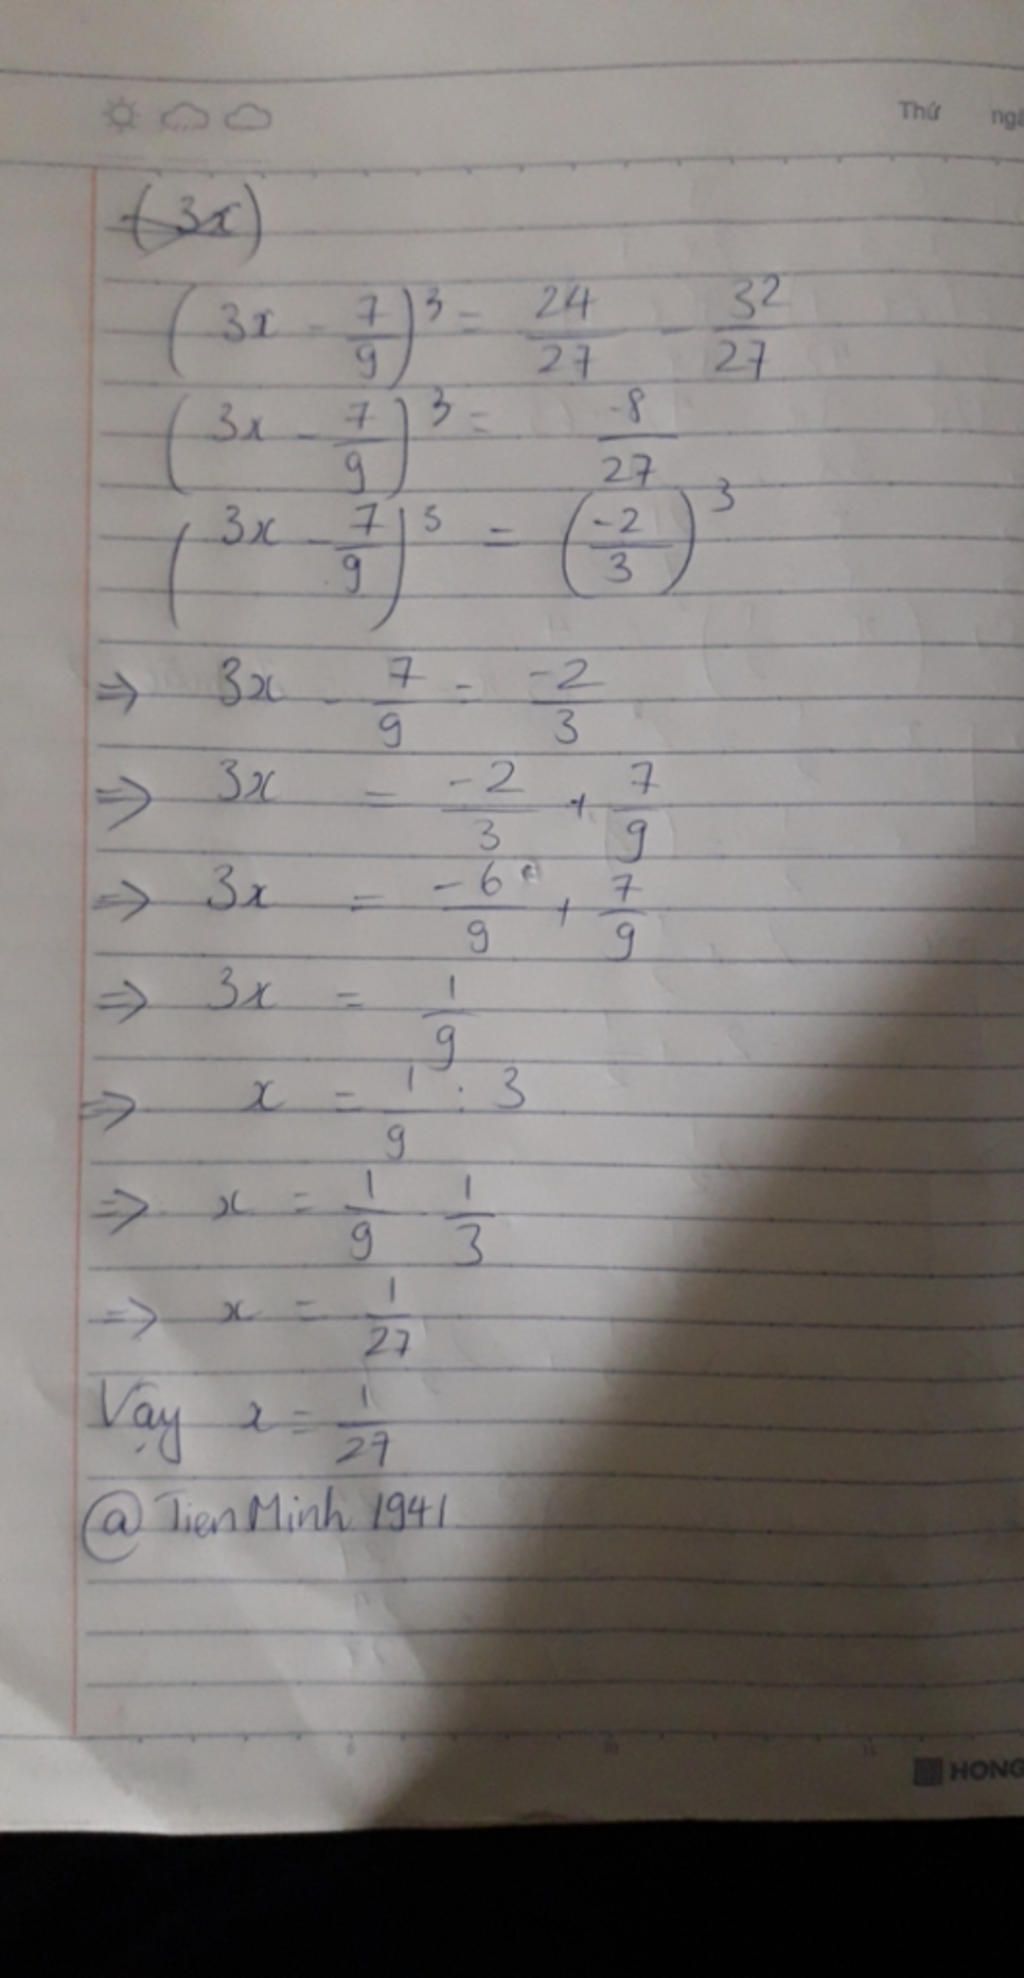 Thứ ngà
(3x)
(3x - 7/9)³ = 24/27 - 32/27
(3x - 7/9)³ = -8/27
(3x - 7/9)³ = (-2/3)³
⇒ 3x - 7/9 = -2/3
⇒ 3x = -2/3 + 7/9
⇒ 3x = -6/9 + 7/9
⇒ 3x = 1/9
⇒ x = 1/9 : 3
⇒ x = 1/9 · 1/3
⇒ x = 1/27
Vậy x = 1/27
@TienMinh 1941
HONG